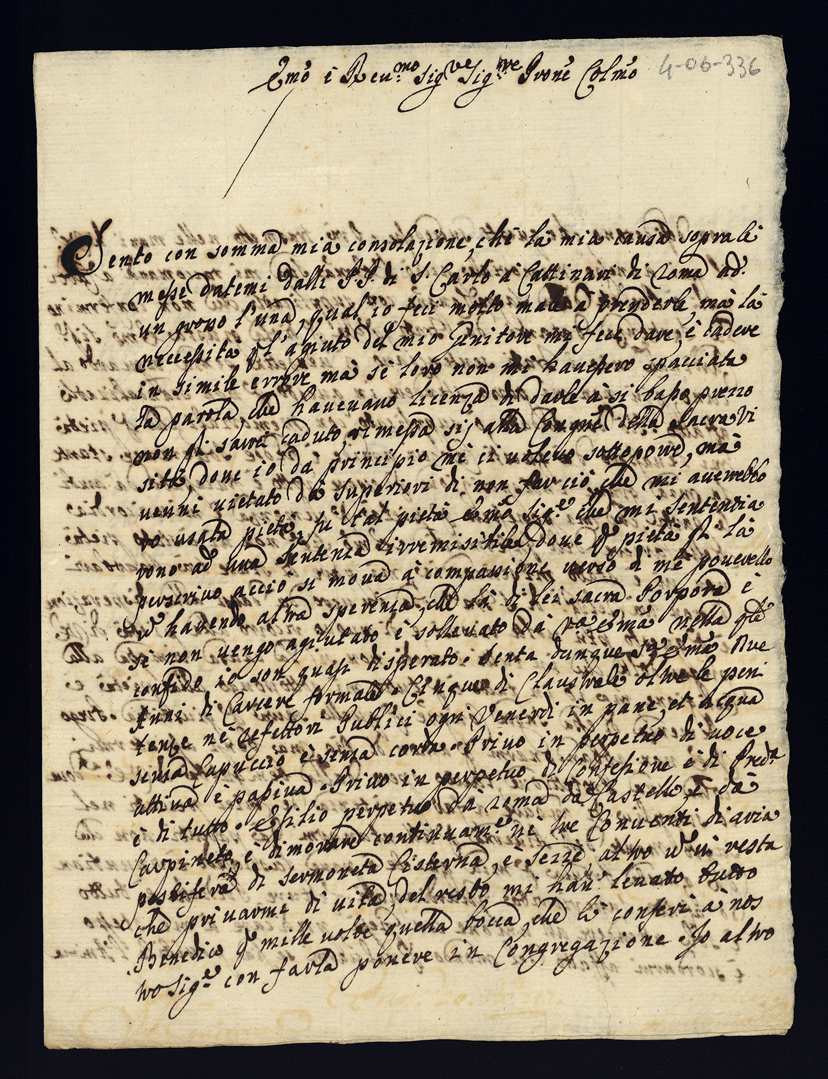 Emo è Reu.mo Sig.re Sig.re Prone Colmo 4-06-336
Sento con somma mia consolazione, che la mia causa soprale
messe datemi dalli PP. di S. Carlo à Cattinari di Roma ad
un grosso l'una, qual'io feci molto male à prenderle, mà la
necessità p l'agiuto del mio Genitore mi fece dare, è cadere
in simile errore mà se loro non mi havessero spacciata
la parola, che havevano licenza di darle à si basso prezzo
non ci sarei caduto, rimessa sij alla Congne della Sacra Vi
sita, dove io dà principio mè ci volevo sottoporre, mà
venni vietato dà superiori di non far ciò, che mi averebbo
ro usata pietà, fù tal pietà Emo Sig.e che mi sententia
rono ad una sentenza irremisibile, dove p pietà p la
perscrivo acciò si mova à compassione verso di me poverello
ñ havendo altra speranza, che la di lei sacra Porpora è
se non vengo agiutato è sollevato dà Va Ema nella qle
confido io son quasi disperato. Senta dunque Va Ema Due
Anni di Carcere formale. Cinque di Claustrale oltre le peni
tenze nè refettori Publici ogni Venerdì in pane, et acqua
senza Capuccio è senza corda. Privo in perpetuo di voce
attiva è passiva. Privo in perpetuo di Confessione è di Predca
è di tutto. Esilio perpetuo dà Roma dà Castello è dà
Carpineto, è dimorare continuam.e nè tre Conventi di aria
pestifera di Sermoneta Cisterna, e Sezze altro ñ vi resta
che privarmi di vita, del resto mi han' levato tutto
Benedico p mille volte quella bocca, che li conferì à nos
tro Sig.e con farla ponere in Congregazione. Io altro